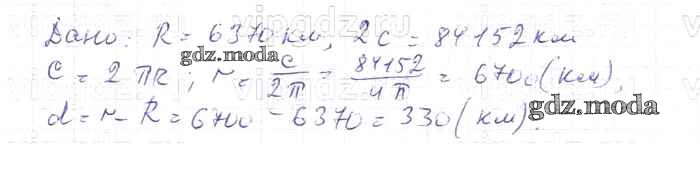 Дано: R = 6370 км, 2C = 84152 км
C = 2πR; r = C/2π = 84152/4π = 6700 (км),
d = r - R = 6700 - 6370 = 330 (км).
gdz.moda
gdz.moda